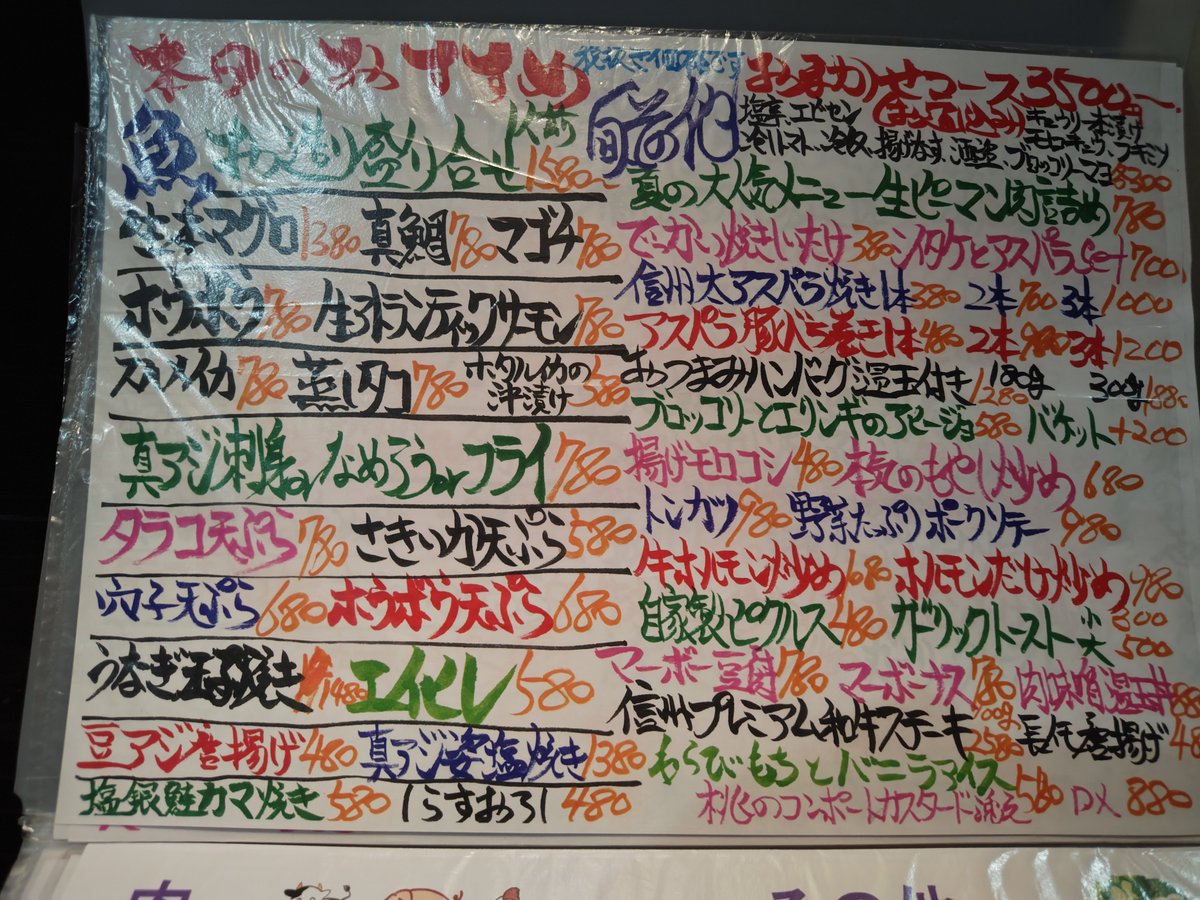 本日のおすすめ
魚 お造り盛り合せ 1人前 1580〜
生本マグロ 1380 真鯛 780 マゴチ 780
ホウボウ 780 生アトランティックサーモン 780
スルメイカ 780 蒸しタコ 780 ホタルイカの沖漬け 580
真アジ刺身orなめろうorフライ 780
タラコ天ぷら 780 さきいか天ぷら 580
穴子天ぷら 680 ホウボウ天ぷら 680
うなぎ玉子焼き 1480 エイヒレ 580
豆アジ唐揚げ 480 真アジ姿塩焼き 1380
塩銀鮭カマ焼き 580 しらすおろし 480
税抜き価格です
旬菜 その他
おまかせコース3500円〜
塩辛、エビセン キュウリ一本漬け
冷トマト、冷奴、揚げなす、 ブロッコリーマヨ 各300
夏の大人気メニュー生ピーマン肉詰め 780
でっかい焼きしいたけ 380 シイタケとアスパラset 700
信州大アスパラ焼き1本 380 2本 700 3本 1000
アスパラ豚バラ巻き1本 480 2本 980 3本 1200
おつまみハンバーグ温玉付き 180g 1280 300g
ブロッコリーとエリンギのアヒージョ 580 バケット +200
揚げモロコシ 480 本気のもやし炒め 680
トンカツ 980 野菜たっぷりポークソテー 980
牛ホルモン炒め 680 ホルモンだけ炒め 980
自家製ピクルス 480 ガーリックトースト 小 300 大 500
マーボー豆腐 780 マーボーナス 780 肉味噌温玉丼
信州プレミアム和牛ステーキ 100g 2580 長芋唐揚げ
わらびもちとバニラアイス 580
桃のコンポートカスタード DX 880
肉 その他